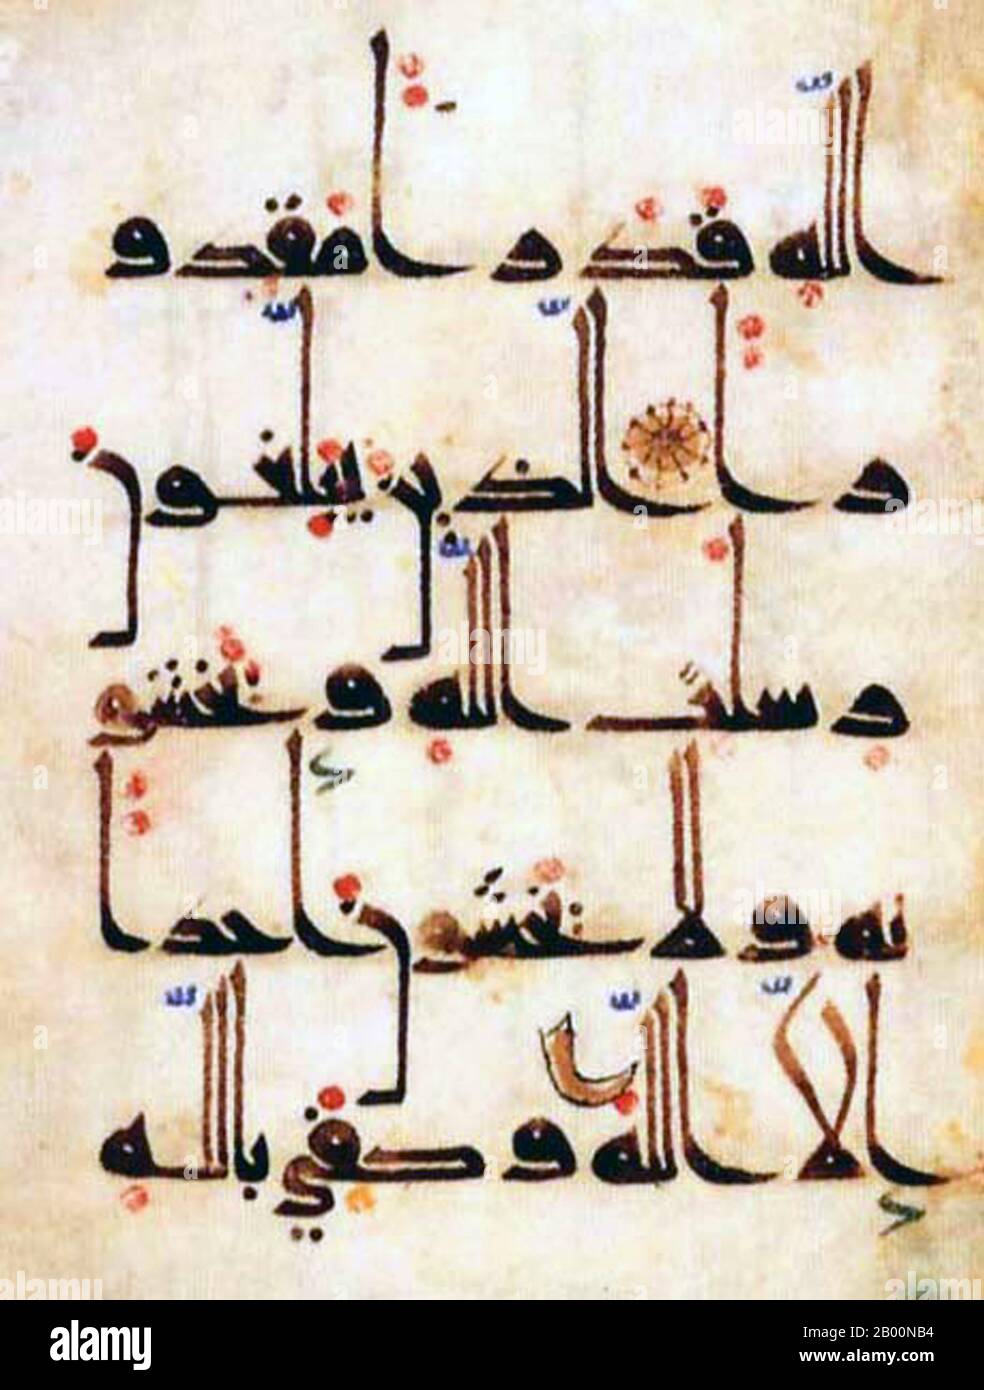 الله قدرا مقدو
را الذين يبلغون
رسلت الله ويخشو
نه ولا يخشون احدا
الا الله وكفي بالله
alamy
Image ID: 2B00NB4
www.alamy.com